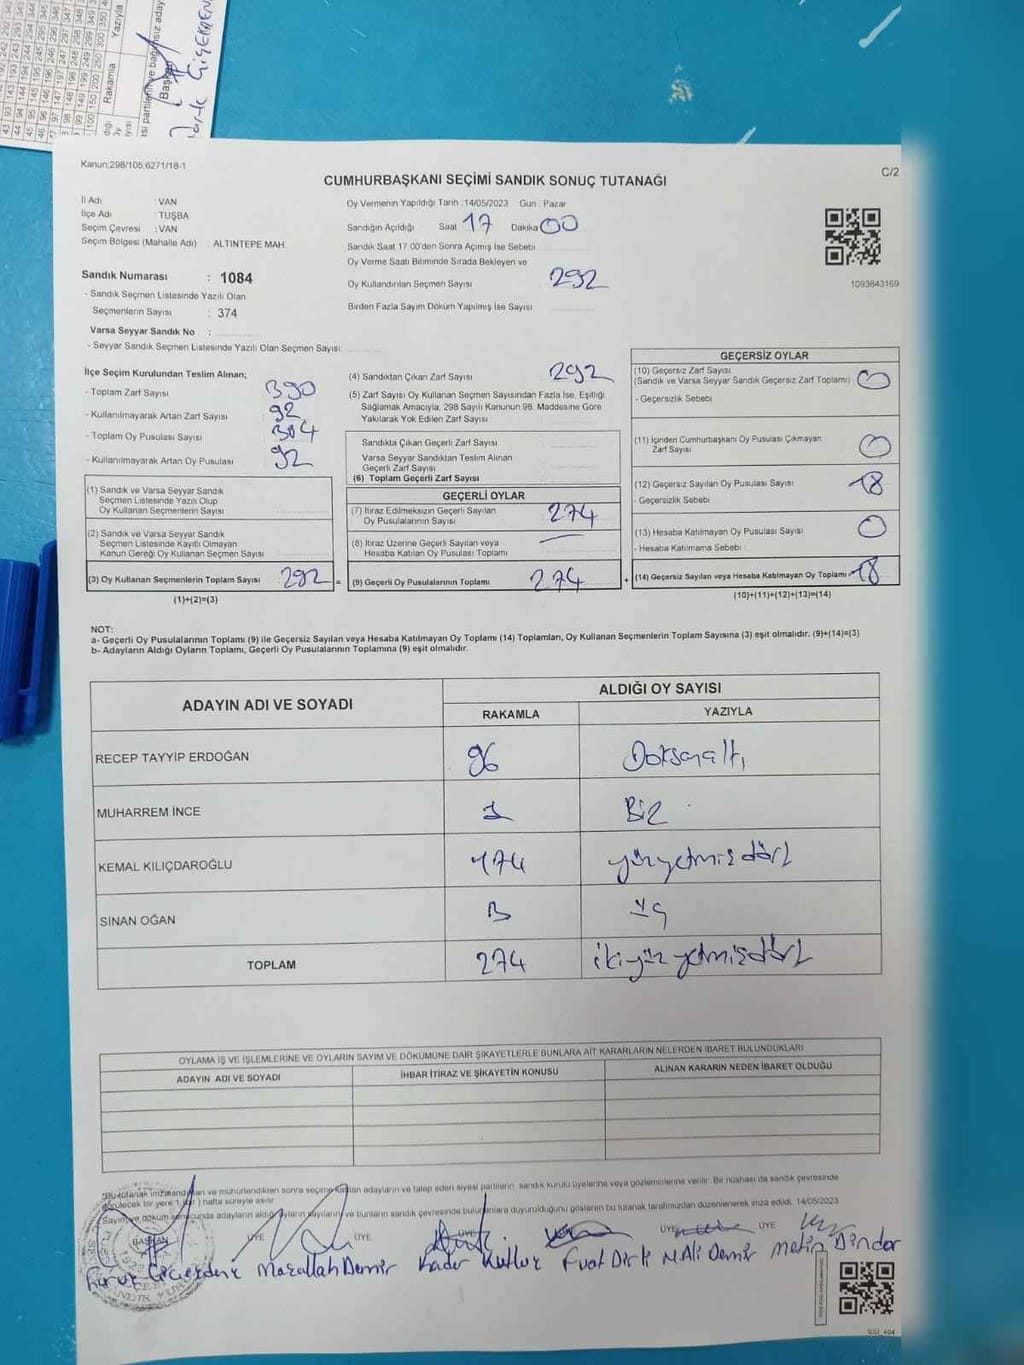 Rakamla
Yazıyla
Kanun:298/105;6271/18-1
C/2
CUMHURBAŞKANI SEÇİMİ SANDIK SONUÇ TUTANAĞI
İl Adı : VAN
İlçe Adı : TUŞBA
Seçim Çevresi : VAN
Seçim Bölgesi (Mahalle Adı) : ALTINTEPE MAH.
Oy Vermenin Yapıldığı Tarih :14/05/2023 Gün : Pazar
Sandığın Açıldığı Saat 17 Dakika 00
Sandık Saat 17:00'den Sonra Açımış İse Sebebi
Oy Verme Saati Bitiminde Sırada Bekleyen ve
Oy Kullandırılan Seçmen Sayısı 292
Birden Fazla Sayım Döküm Yapılmış İse Sayısı
1093843169
Sandık Numarası : 1084
- Sandık Seçmen Listesinde Yazılı Olan
Seçmenlerin Sayısı : 374
Varsa Seyyar Sandık No :
- Seyyar Sandık Seçmen Listesinde Yazılı Olan Seçmen Sayısı:
İlçe Seçim Kurulundan Teslim Alınan;
- Toplam Zarf Sayısı 390
- Kullanılmayarak Artan Zarf Sayısı 92
- Toplam Oy Pusulası Sayısı 384
- Kullanılmayarak Artan Oy Pusulası 92
(1) Sandık ve Varsa Seyyar Sandık
Seçmen Listesinde Yazılı Olup
Oy Kullanan Seçmenlerin Sayısı
(2) Sandık ve Varsa Seyyar Sandık
Seçmen Listesinde Kayıtlı Olmayan
Kanun Gereği Oy Kullanan Seçmen Sayısı
(3) Oy Kullanan Seçmenlerin Toplam Sayısı 292 =
(1)+(2)=(3)
(4) Sandıktan Çıkan Zarf Sayısı 292
(5) Zarf Sayısı Oy Kullanan Seçmen Sayısından Fazla İse, Eşitliği
Sağlamak Amacıyla, 298 Sayılı Kanunun 98. Maddesine Göre
Yakılarak Yok Edilen Zarf Sayısı
Sandıkta Çıkan Geçerli Zarf Sayısı
Varsa Seyyar Sandıktan Teslim Alınan
Geçerli Zarf Sayısı
(6) Toplam Geçerli Zarf Sayısı
GEÇERLİ OYLAR
(7) İtiraz Edilmeksizin Geçerli Sayılan
Oy Pusulalarının Sayısı 274
(8) İtiraz Üzerine Geçerli Sayılan veya
Hesaba Katılan Oy Pusulası Toplamı
(9) Geçerli Oy Pusulalarının Toplamı 274 +
GEÇERSİZ OYLAR
(10) Geçersiz Zarf Sayısı
(Sandık ve Varsa Seyyar Sandık Geçersiz Zarf Toplamı) 0
- Geçersizlik Sebebi
(11) İçinden Cumhurbaşkanı Oy Pusulası Çıkmayan
Zarf Sayısı 0
(12) Geçersiz Sayılan Oy Pusulası Sayısı 18
- Geçersizlik Sebebi
(13) Hesaba Katılmayan Oy Pusulası Sayısı 0
- Hesaba Katılmama Sebebi
(14) Geçersiz Sayılan veya Hesaba Katılmayan Oy Toplamı 18
(10)+(11)+(12)+(13)=(14)
NOT:
a- Geçerli Oy Pusulalarının Toplamı (9) ile Geçersiz Sayılan veya Hesaba Katılmayan Oy Toplamı (14) Toplamları, Oy Kullanan Seçmenlerin Toplam Sayısına (3) eşit olmalıdır. (9)+(14)=(3)
b- Adayların Aldığı Oyların Toplamı, Geçerli Oy Pusulalarının Toplamına (9) eşit olmalıdır.
ADAYIN ADI VE SOYADI
ALDIĞI OY SAYISI
RAKAMLA YAZIYLA
RECEP TAYYİP ERDOĞAN 96 Doksanaltı
MUHARREM İNCE 1 Bir
KEMAL KILIÇDAROĞLU 174 yüzyetmişdört
SİNAN OĞAN 3 üç
TOPLAM 274 ikiyüzyetmişdört
OYLAMA İŞ VE İŞLEMLERİNE VE OYLARIN SAYIM VE DÖKÜMÜNE DAİR ŞİKAYETLERLE BUNLARA AİT KARARLARIN NELERDEN İBARET BULUNDUKLARI
ADAYIN ADI VE SOYADI İHBAR İTİRAZ VE ŞİKAYETİN KONUSU ALINAN KARARIN NEDEN İBARET OLDUĞU
ve mühürlendikten sonra seçime katılan adayların ve talep eden siyasi partilerin sandık kurulu üyelerine veya gözlemcilerine verilir. Bir nüshası da sandık çevresinde
bir yere 1 ( ) hafta süreyle asılır.
Sayım ve döküm sonucunda adayların aldığı oyların sayılarını ve bunların sandık çevresinde bulunanlara duyurulduğunu gösteren bu tutanak tarafımızdan düzenlenerek imza edildi. 14/05/2023
BAŞKAN ÜYE ÜYE ÜYE ÜYE ÜYE
Mazallah Demir Kader Kutlur Fuat Dirk M.Ali Demir Metin Dindar
SSI_404